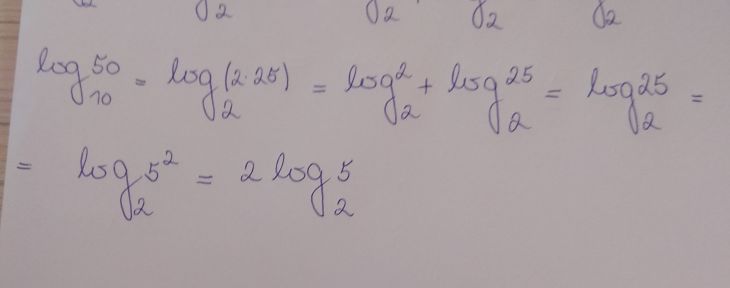 log₁₀50 = log₂(2·25) = log₂2 + log₂25 = log₂25 =
= log₂5² = 2 log₂5